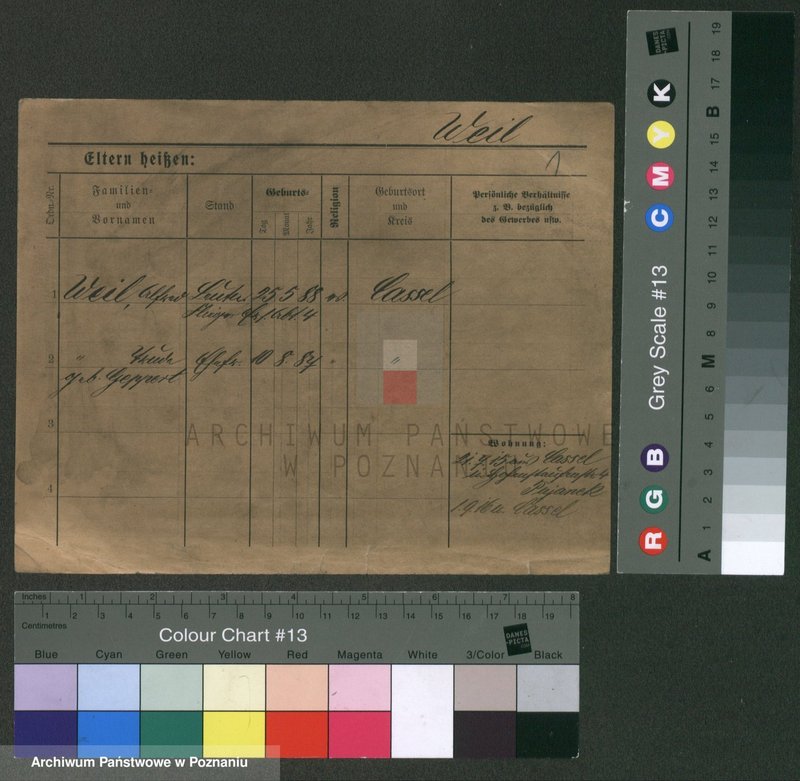 Weil
Eltern heißen:
1
Ordn.-Nr.
Familien-
und
Vornamen
Stand
Geburts-
Tag
Monat
Jahr
Religion
Geburtsort
und
Kreis
Persönliche Verhältnisse
z. B. bezüglich
des Gewerbes usw.
1
Weil, Alfred
25 5 88
Cassel
2
" Trude
Ehefr. 10 8. 87 " "
geb. Geppert
3
4
ARCHIWUM PAŃSTWOWE
W POZNANIU
Wohnung:
Cassel
Pujanek
Cassel
Grey Scale #13
DANES
-PICTA
.com
R G B C M Y K
A 1 2 3 4 5 6 M 8 9 10 11 12 13 14 15 B 17 18 19
Inches 1 2 3 4 5 6 7 8
Centimetres 1 2 3 4 5 6 7 8 9 10 11 12 13 14 15 16 17 18 19
Colour Chart #13
DANES
-PICTA
.com
Blue Cyan Green Yellow Red Magenta White 3/Color Black
Archiwum Państwowe w Poznaniu